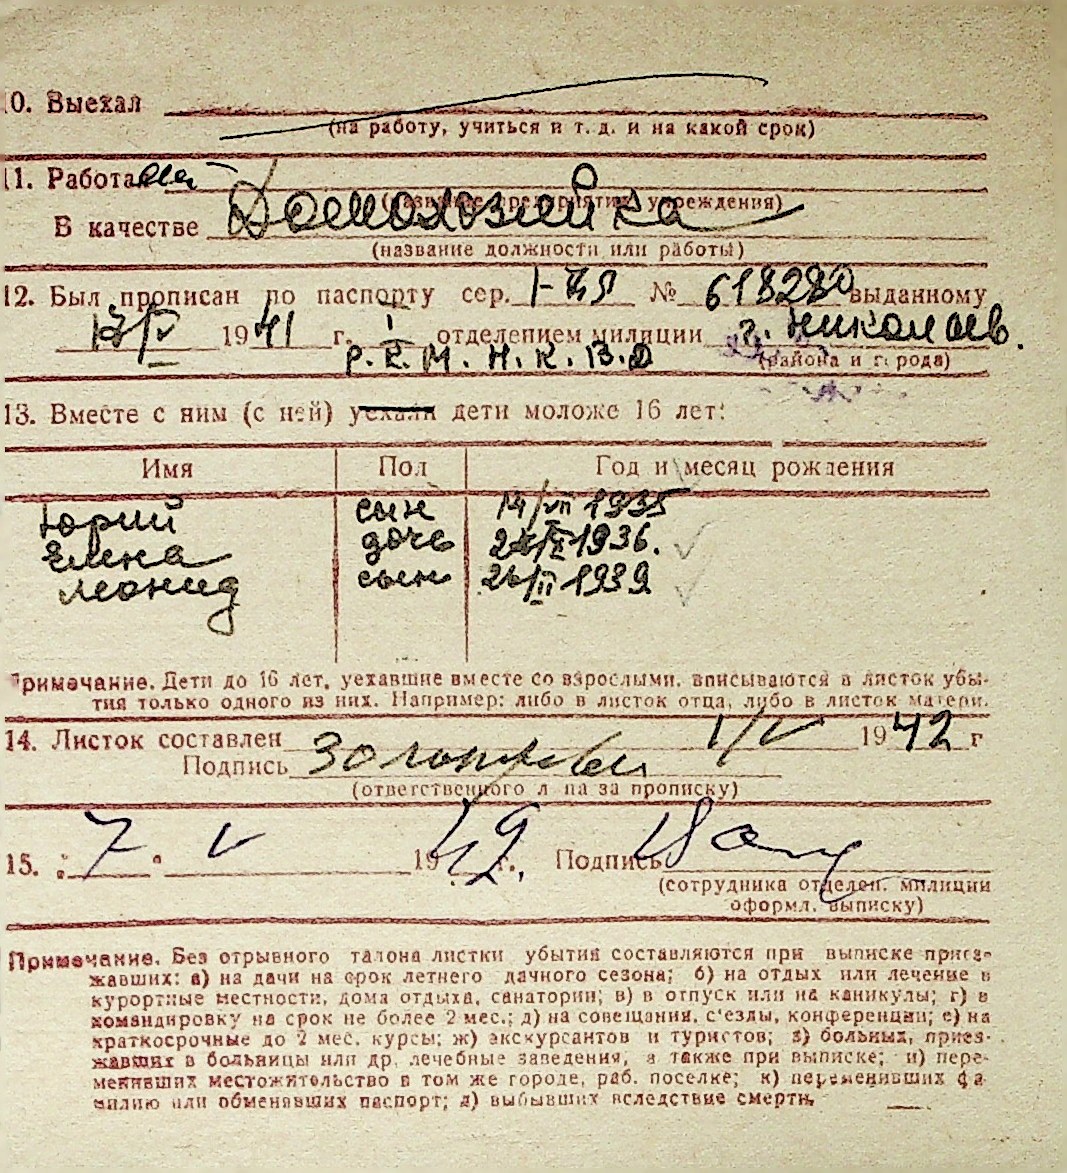 10. Выехал
(на работу, учиться и т. д. и на какой срок)
11. Работала
(название предприятия, учреждения)
В качестве Домохозяйка
(название должности или работы)
12. Был прописан по паспорту сер. № 618280 выданному
1941 г. I отделением милиции г. Николаев.
Р. К. М. Н. К. В. Д (района и города)
13. Вместе с ним (с ней) уехали дети моложе 16 лет:
Имя Пол Год и месяц рождения
Юрий сын 14/VII 1935
Елена дочь 1936.
Леонид сын 26/II 1939
Примечание. Дети до 16 лет, уехавшие вместе со взрослыми, вписываются в листок убы-
тия только одного из них. Например: либо в листок отца, либо в листок матери.
14. Листок составлен 1/V 1942 г
Подпись
(ответственного лица за прописку)
15. 7 V 1942 г. Подпись
(сотрудника отделен. милиции
оформл. выписку)
Примечание. Без отрывного талона листки убытия составляются при выписке приез-
жавших: а) на дачи на срок летнего дачного сезона; б) на отдых или лечение в
курортные местности, дома отдыха, санатории; в) в отпуск или на каникулы; г) в
командировку на срок не более 2 мес.; д) на совещания, с'езды, конференции; е) на
краткосрочные до 2 мес. курсы; ж) экскурсантов и туристов; з) больных, приез-
жавших в больницы или др. лечебные заведения, а также при выписке; и) пере-
менивших местожительство в том же городе, раб. поселке; к) переменивших фа-
милию или обменявших паспорт; л) выбывших вследствие смерти.